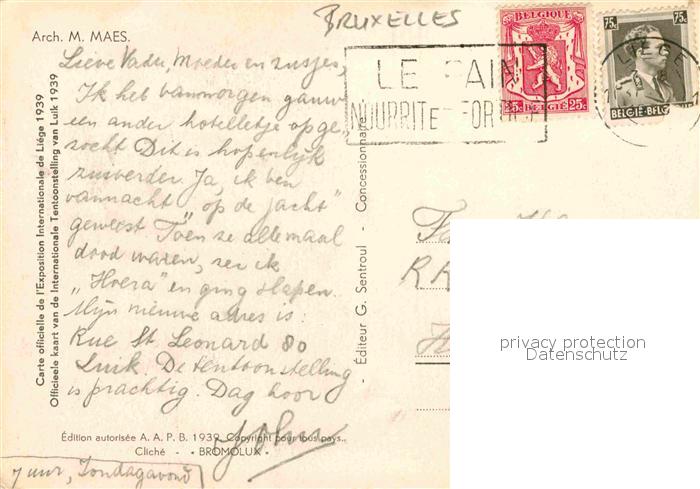 BRUXELLES
Arch. M. MAES.
BELGIQUE
25c 25c
75c 75c
BELGIË-BELGIQUE
LIEGE
LE PAIN
NOURRIT et FORTIFIE
Lieve Vader, Moeder en zusjes,
Ik heb vanmorgen gauw
een ander hotelletje opge-
zocht Dit is hopenlijk
zuiverder. Ja, ik ben
vannacht "op de jacht"
geweest Toen ze allemaal
dood waren, zei ik
"Hoera" en ging slapen.
Mijn nieuwe adres is:
Rue St. Leonard 80
Luik De tentoonstelling
is prachtig. Dag hoor
John
7 uur, Zondagavond
Carte officielle de l'Exposition Internationale de Liége 1939
Officieele kaart van de Internationale Tentoonstelling van Luik 1939
- Éditeur G. Sentroul - Concessionnaire
Édition autorisée A. A. P. B. 1939. Copyright pour tous pays.
Cliché - «BROMOLUX»
privacy protection
Datenschutz